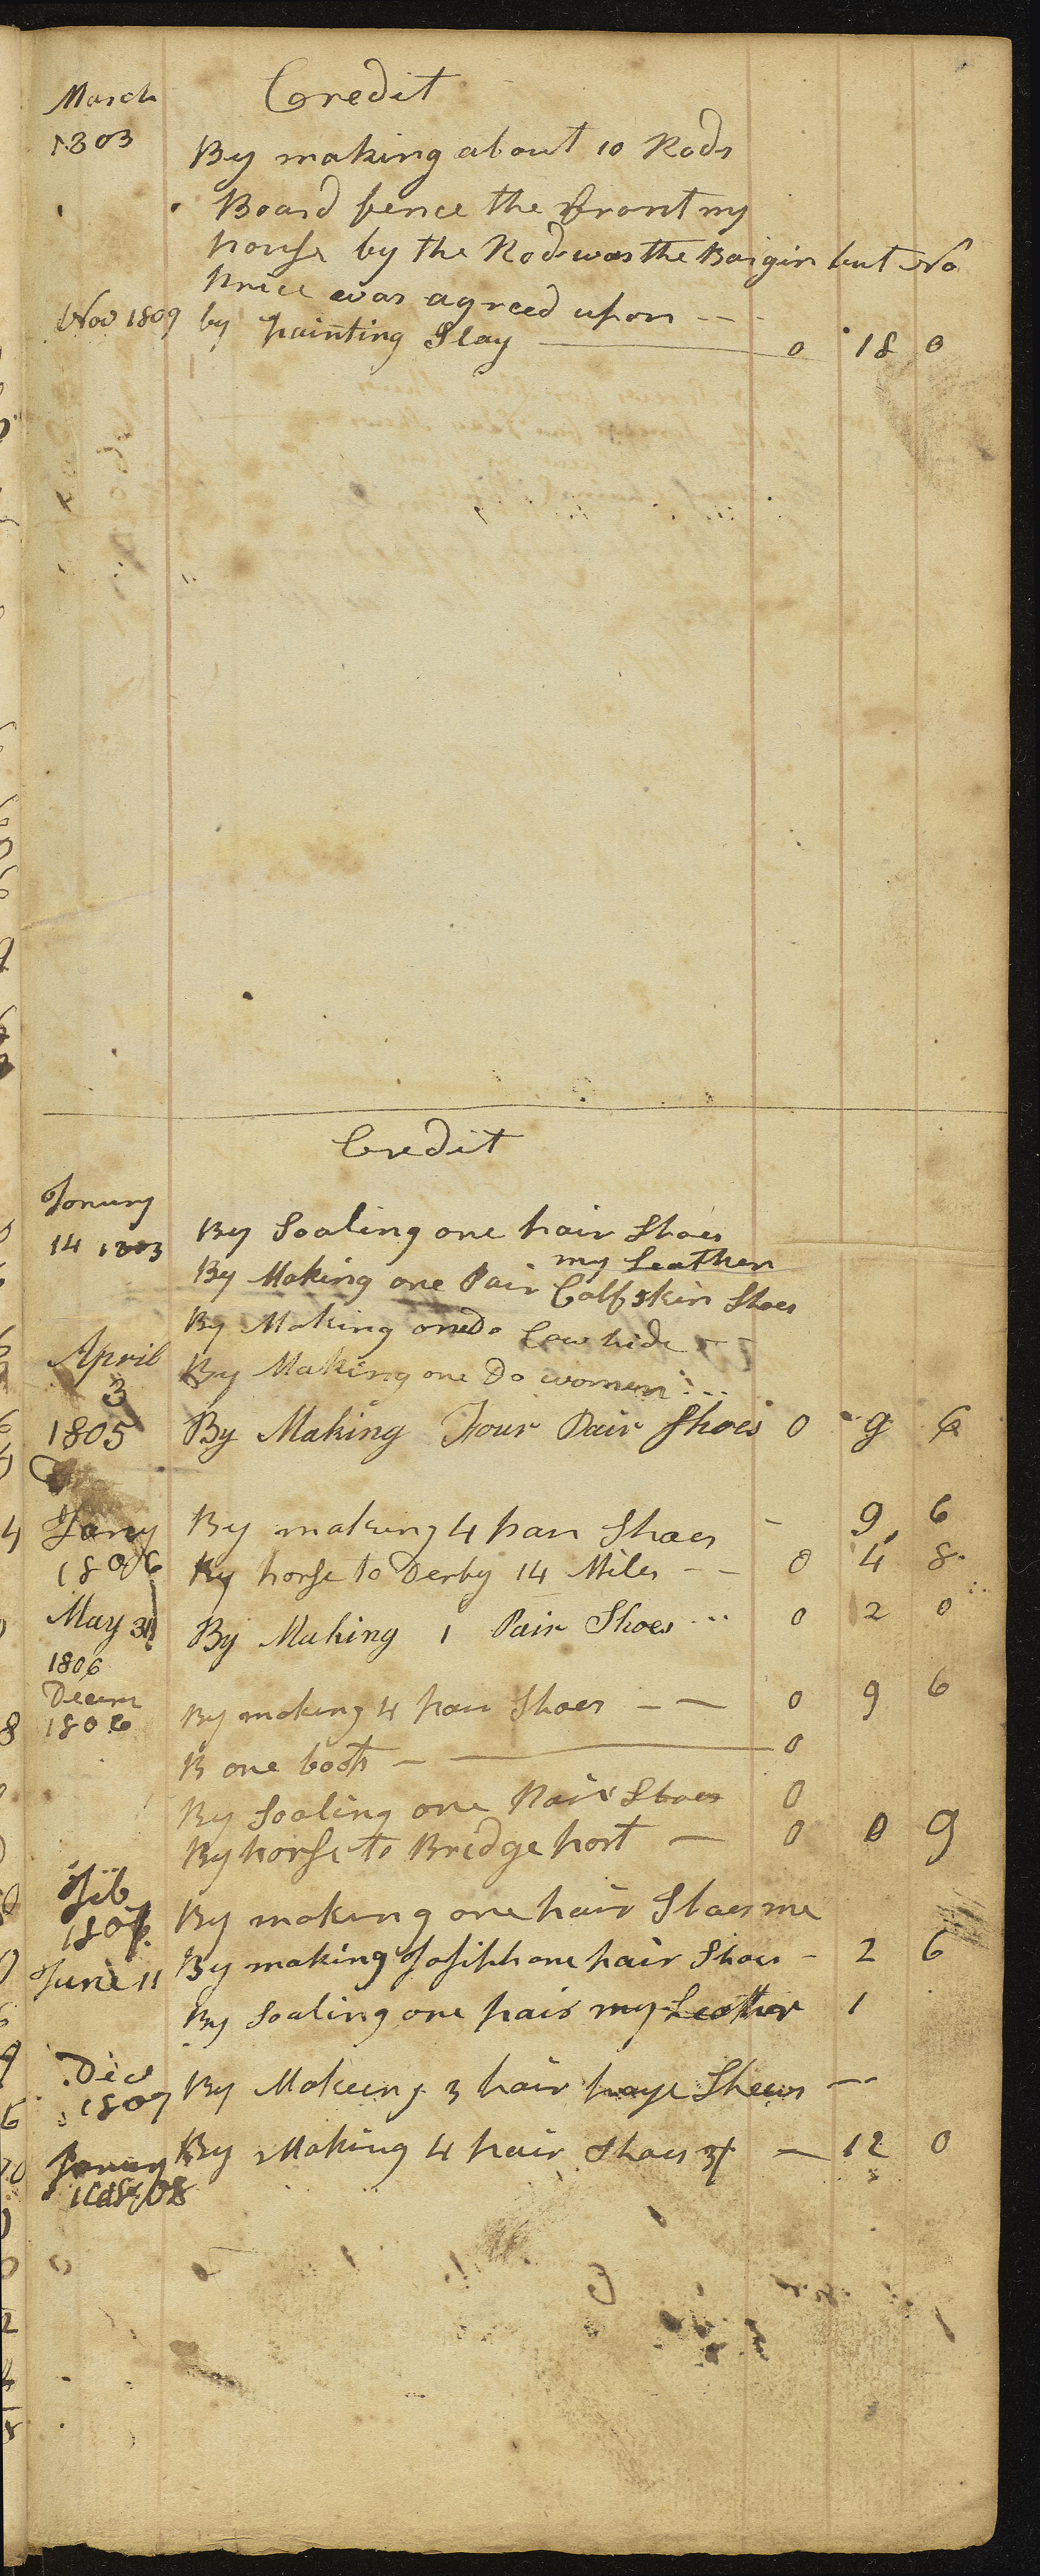 Credit
March
1803
By making about 10 Rods
Board fence the front my
house by the Rod was the Bargin but No
Price was agreed upon - - -
Nov 1809 by painting Slay — 0 18 0
Credit
Janury
14 1803
By Soaling one pair Shoes
my Leather
By Making one Pair Calfskin Shoes
By Making one Do Cow hide - -
By Making one Do women ...
April
3
1805 By Making Four Pair Shoes 0 9 6
Jany By making 4 pair Shoes - 9 6
1806 By horse to Derby 14 Miles - - 0 4 8
May 31 By Making 1 Pair Shoes ... 0 2 0
1806
Decem
1806 By making 4 pair Shoes — — 0 9 6
B one boots — 0
By Soaling one Pair Shoes 0
By horse to Bridgeport — 0 0 9
Feb
By making one pair Shoes me
June 11 By making Joseph one pair Shoes - 2 6
By Soaling one pair my Leather 1
Dec
1807 By Makeing 3 pair Shews —
Janury By Making 4 pair Shoes — 12 0